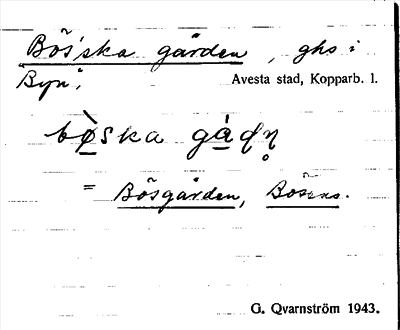 Bös'ska gården, ghs i
"Byn",
Avesta stad, Kopparb. l.
bø̀ska gàɖn̥
= Bösgården, Bösens.
G. Qvarnström 1943.